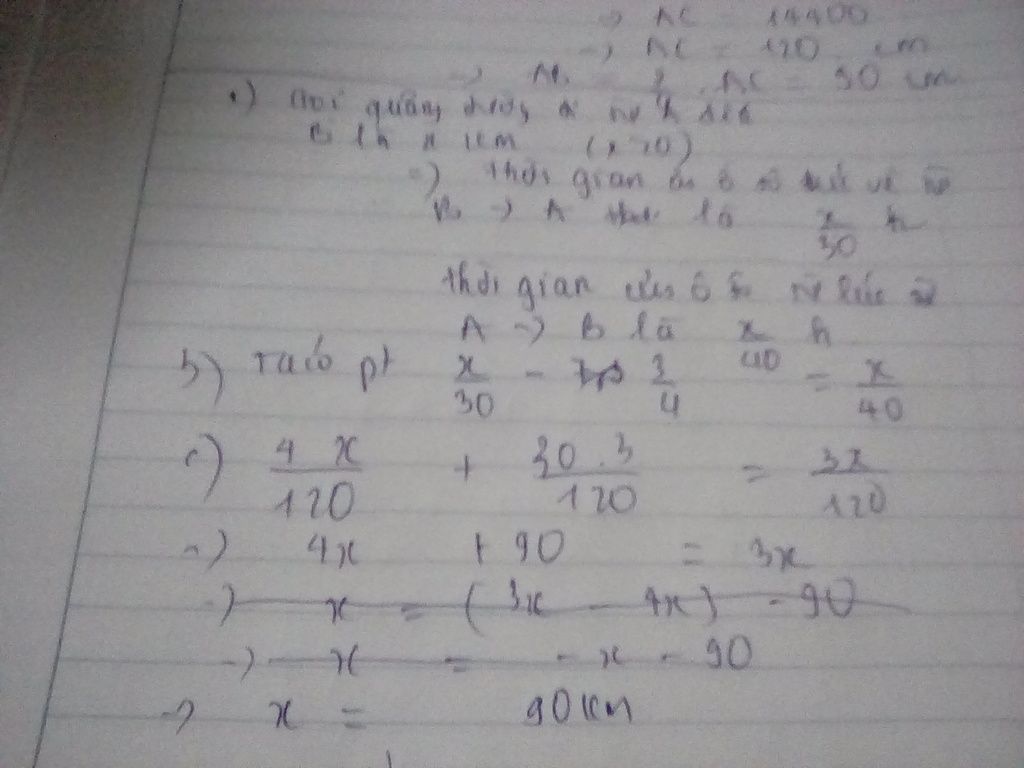 => AC = 14400
=> AC = 120 cm
=> = 3/4 . AC = 90 cm
Gọi quãng đường từ A đến
B là x km (x > 0)
=> thời gian ô tô lúc về từ
B -> A là x/30 h
thời gian của ô tô lúc từ
A -> B là x/40 h
b) Ta có pt x/30 - 3/4 = x/40
=> 4x/120 + 30.3/120 = 3x/120
=> 4x + 90 = 3x
=> x = (3x - 4x) - 90
=> x = -x - 90
=> x = 90 km